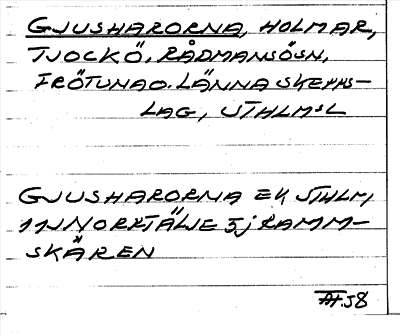 GJUSHARORNA, HOLMAR,
TJOCKÖ, RÅDMANSÖSN,
FRÖTUNA O. LÄNNA SKEPPS-
LAG, STHLMSL
GJUSHARORNA EK STHLM,
11J NORRTÄLJE 5j RAMM-
SKÄREN
58